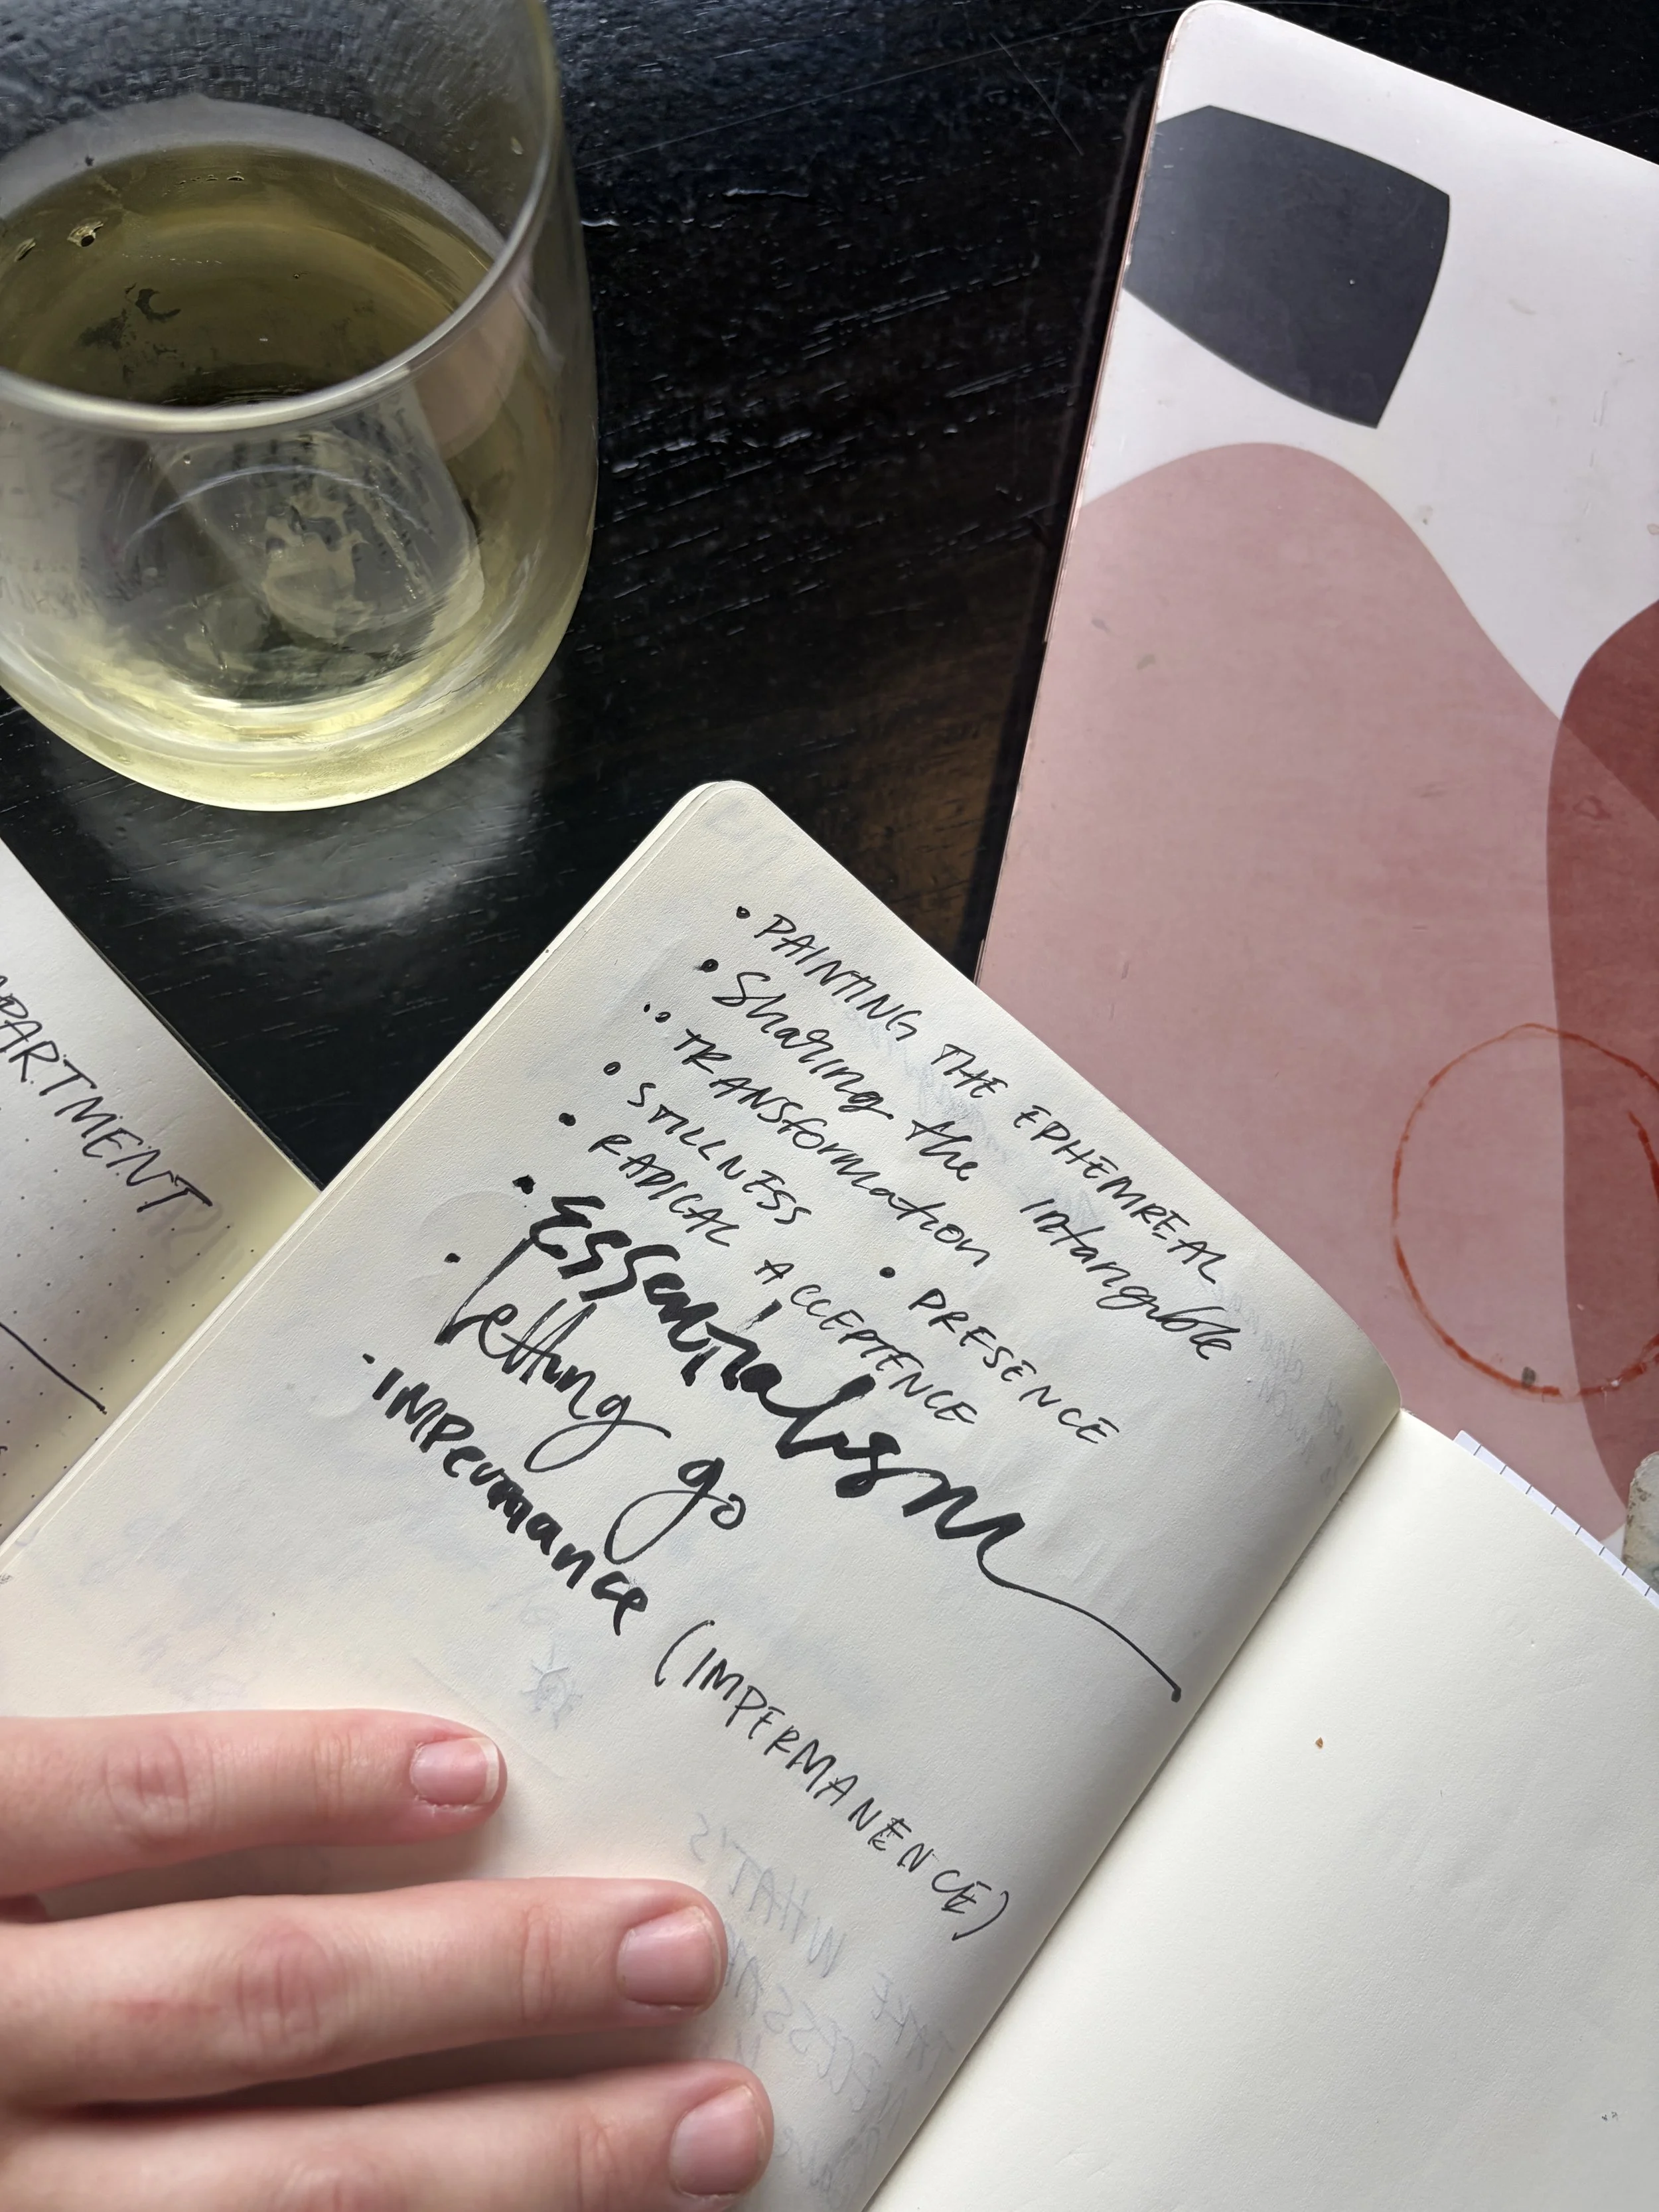 • PAINTING THE EPHEMREAL
• Sharing the intangible
•• TRANSformation
• STILLNESS • PRESENCE
• RADICAL ACCEPTENCE
• Essentialism
• Letting go
• IMPermance (IMPERMANENCE)
PARTMENT
WHAT'S